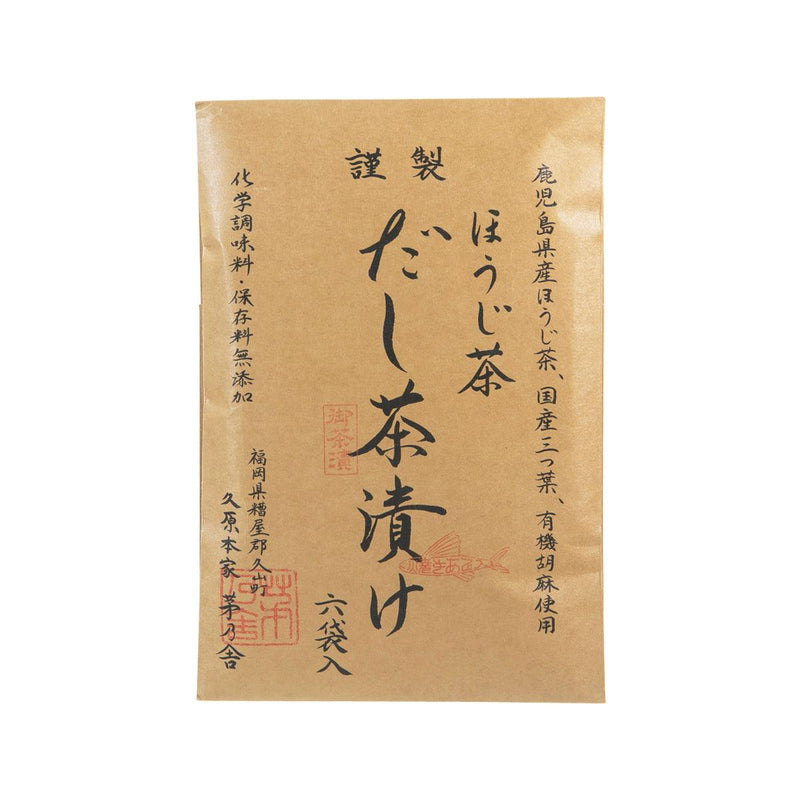 謹製
鹿児島県産ほうじ茶、国産三つ葉、有機胡麻使用
ほうじ茶
だし茶漬け
六袋入
御茶漬
化学調味料・保存料無添加
福岡県糟屋郡久山町
久原本家 茅乃舎